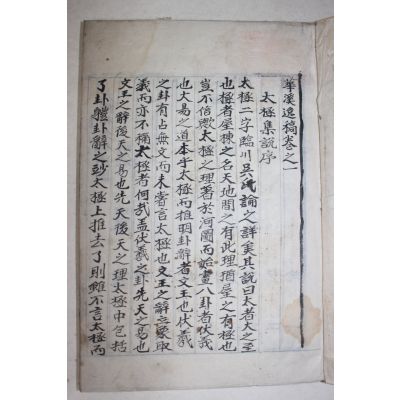 華溪逸稿卷之一
太極集説序
太極二字臨川吳氏論之詳矣其説曰太者大之至
也極者屋棟之名天地間之有此理猶屋之有極也
豈不信歟太極之理著於河圖而始畫八卦者伏羲
也大易之道本乎太極而推明卦辭者文王也伏羲
之卦有占無文而未嘗言太極也文王之辭立象取
義而亦不稱太極者何㦲盖伏羲之卦先天之易也
文王之辭後天之易也先天後天之理太極中包括
了卦體卦辭之玅太極上推去了則雖不言太極而